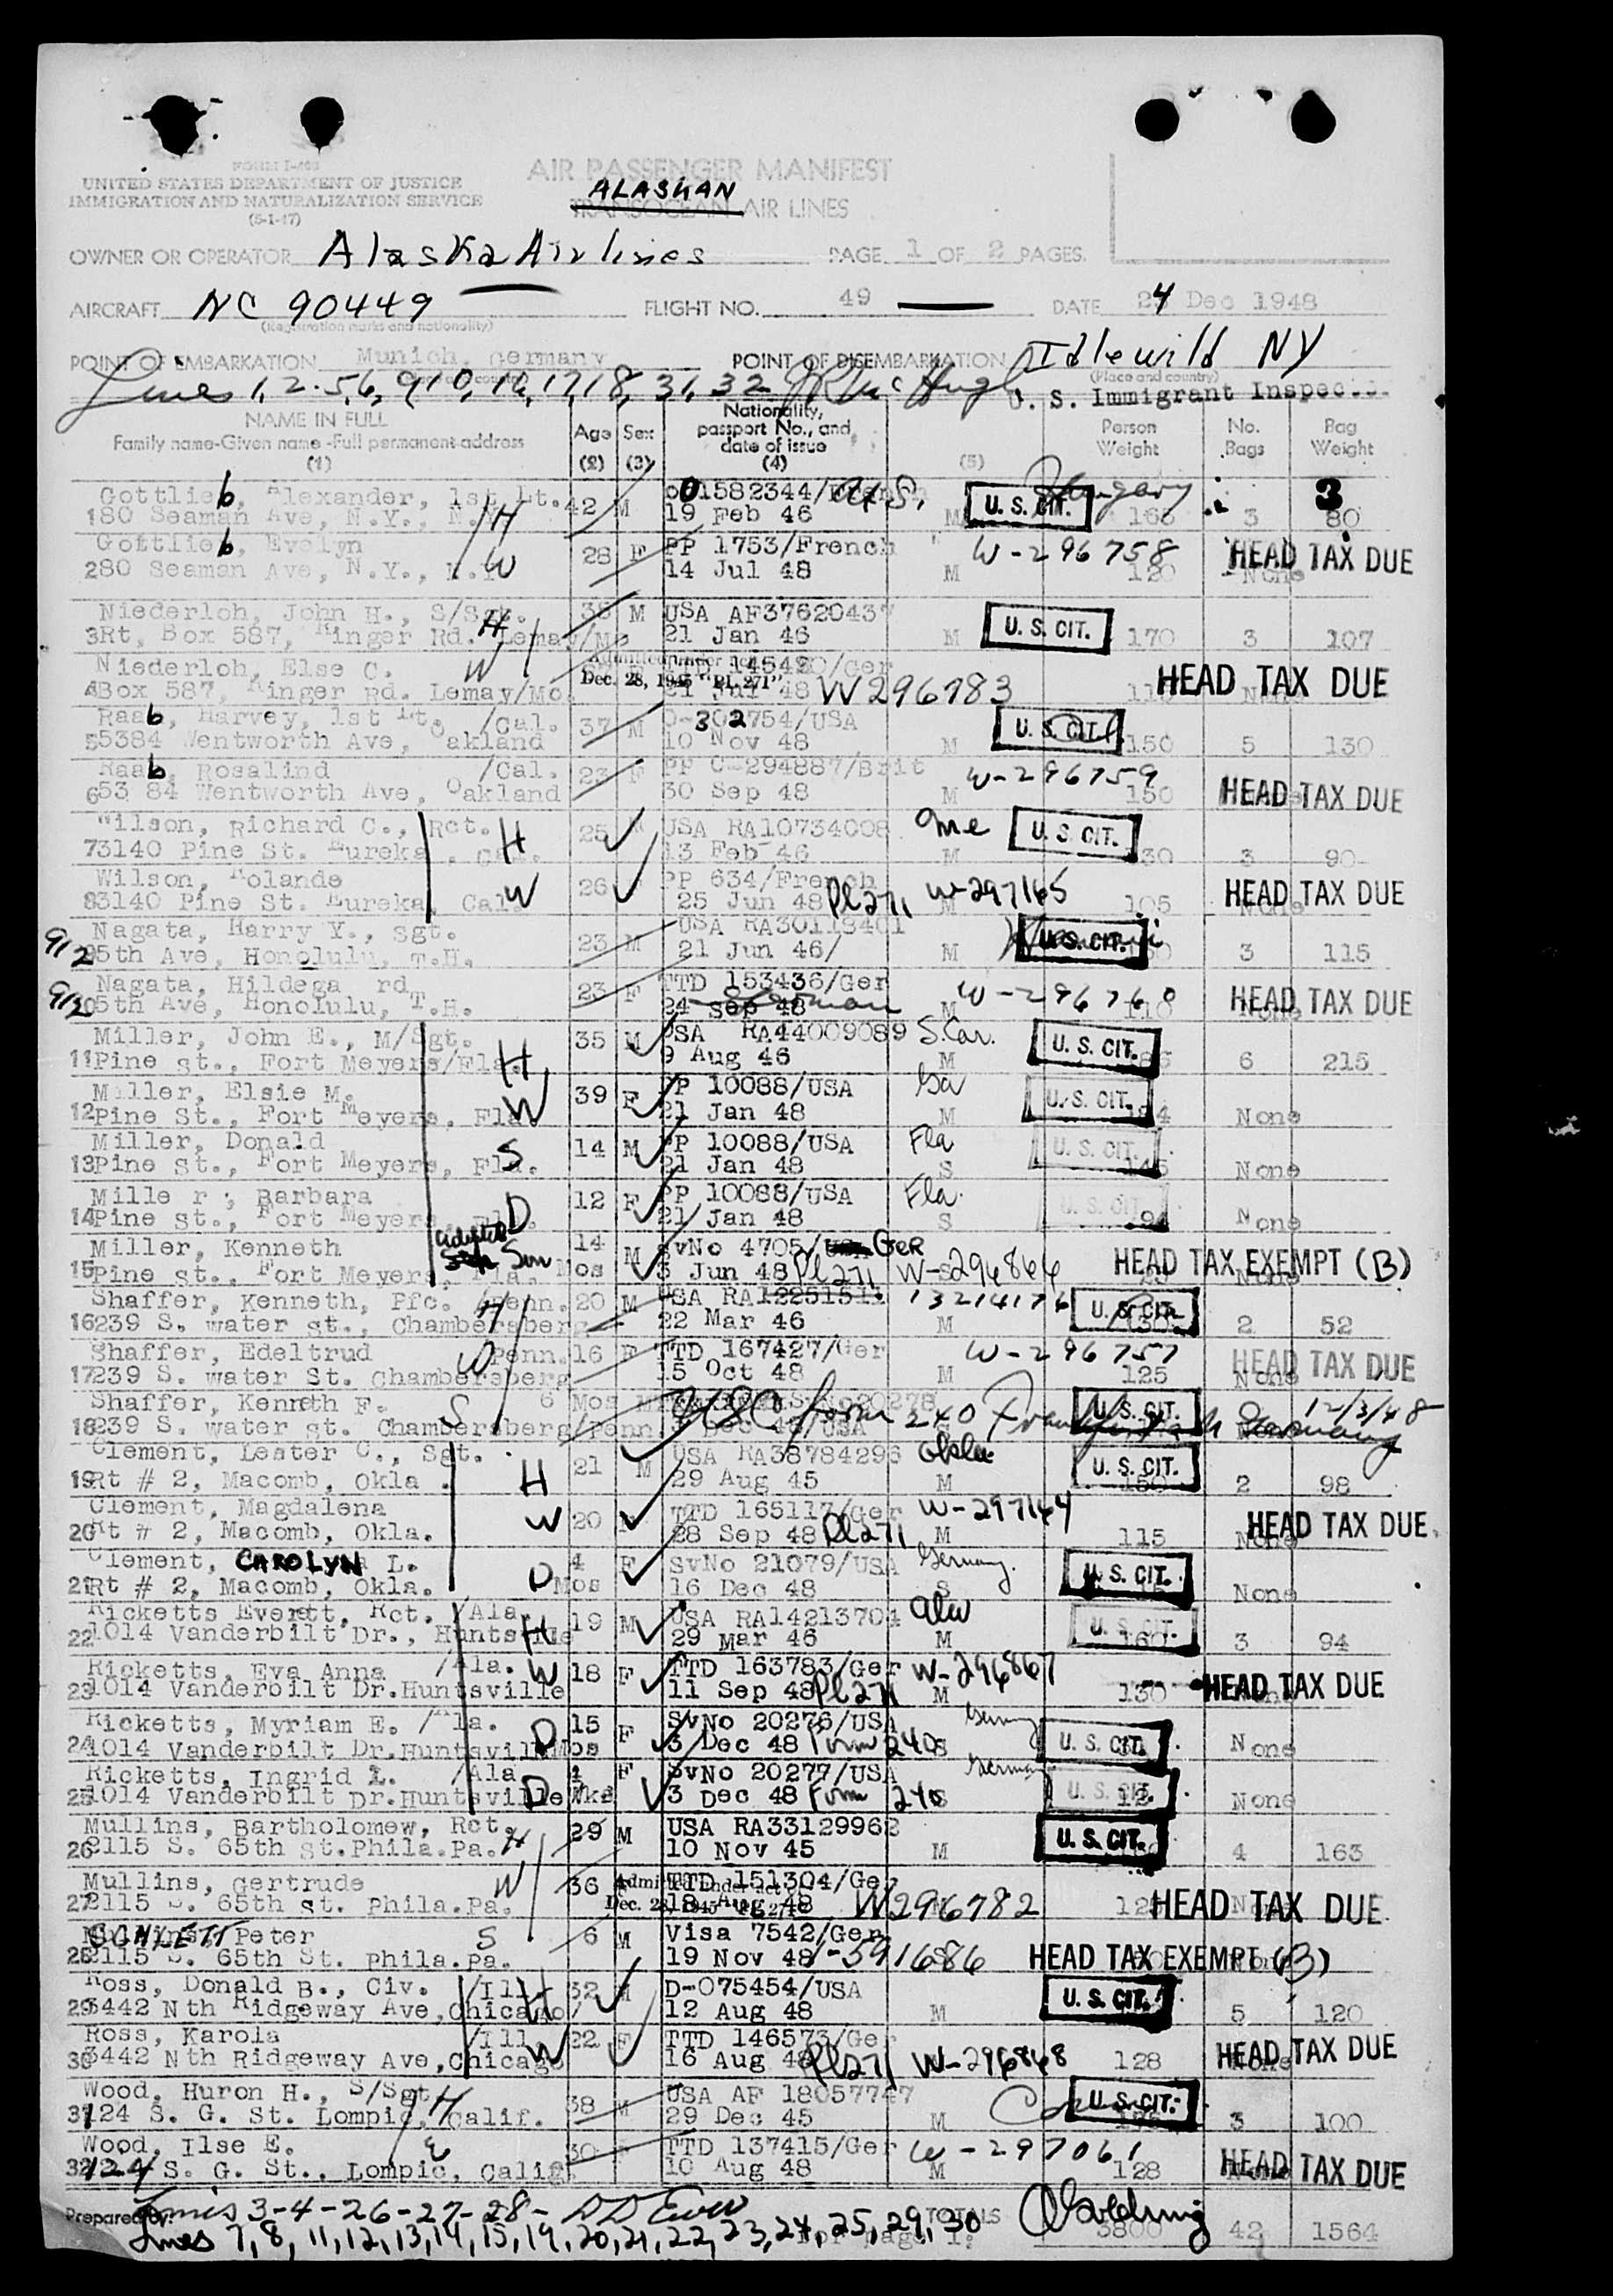 FORM I-466
UNITED STATES DEPARTMENT OF JUSTICE
IMMIGRATION AND NATURALIZATION SERVICE
(6-1-47)
AIR PASSENGER MANIFEST
ALASKAN
TRANSOCEAN AIR LINES
OWNER OR OPERATOR Alaska Airlines PAGE 1 OF 2 PAGES.
AIRCRAFT NC 90449 FLIGHT NO. 49 DATE 24 Dec 1948
(Registration marks and nationality)
POINT OF EMBARKATION Munich, Germany POINT OF DISEMBARKATION Idlewild NY
(Place and country)
Lines 1, 2, 5, 6, 9, 10, 16, 17, 18, 31, 32 U. S. Immigrant Inspector
NAME IN FULL
Family name-Given name-Full permanent address
(1)
Age (2) Sex (3) Nationality, passport No., and date of issue (4) (5) Person Weight No. Bags Bag Weight
Gottlieb, Alexander, 1st Lt. 42 M 01582344/ U.S. U. S. CIT. Hungary 3
1 80 Seaman Ave, N.Y., N.Y. H 19 Feb 46 M 3 80
Gottlieb, Evelyn 28 F PP 1753/French W-296758 HEAD TAX DUE
2 80 Seaman Ave, N.Y., N.Y. W 14 Jul 48 M 120 None
Niederloh, John H., S/Sgt. M USA AF37620437 U. S. CIT.
3 Rt, Box 587, Ringer Rd. Lemay/Mo H 21 Jan 46 M 170 3 107
Niederloh, Else C. W F TTD /Ger HEAD TAX DUE
4 Box 587, Ringer Rd. Lemay/Mo. Dec. 28, 1945 "PL 271" 21 Jul 48 W296783
Raab, Harvey, 1st Lt. /Cal. 37 M O-302754/USA U. S. CIT.
5 5384 Wentworth Ave, Oakland 10 Nov 48 M 150 5 130
Raab, Rosalind /Cal. 23 F PP C-294887/Brit W-296759
6 53 84 Wentworth Ave, Oakland 30 Sep 48 M 150 HEAD TAX DUE
Wilson, Richard C., Rct. H 25 M USA RA10734008 Me U. S. CIT.
7 3140 Pine St. Eureka, Cal. 13 Feb 46 M 130 3 90
Wilson, Yolande W 26 F PP 634/French W-297165 HEAD TAX DUE
8 3140 Pine St. Eureka, Cal. 25 Jun 48 Pl271 M 105 None
Nagata, Harry Y., Sgt. 23 M USA RA30113401 U. S. CIT.
9 912 5th Ave, Honolulu, T.H. 21 Jun 46/ M 3 115
Nagata, Hildega rd 23 F TTD 153436/Ger W-296760 HEAD TAX DUE
10 912 5th Ave, Honolulu, T.H. 24 Sep 48 German M 110 None
Miller, John E., M/Sgt. H 35 M USA RA44009089 S.Car. U. S. CIT.
11 Pine st., Fort Meyers/Fla. 9 Aug 46 M 6 215
Miller, Elsie M. W 39 F PP 10088/USA Ga U. S. CIT.
12 Pine St., Fort Meyers, Fla. 21 Jan 48 M None
Miller, Donald S 14 M PP 10088/USA Fla U. S. CIT.
13 Pine st., Fort Meyers, Fla. 21 Jan 48 S 145 None
Mille r, Barbara D 12 F PP 10088/USA Fla. U. S. CIT.
14 Pine st., Fort Meyers, Fla. 21 Jan 48 S 94 None
Miller, Kenneth adopted Son 14 M SvNo 4705/ Ger HEAD TAX EXEMPT (B)
15 Pine st., Fort Meyers, Fla. Mos 3 Jun 48 Pl271 W-296866 None
Shaffer, Kenneth, Pfc. /Penn. H 20 M USA RA12251511 13214176 U. S. CIT.
16 239 S. water st., Chambersberg 22 Mar 46 M 130 2 52
Shaffer, Edeltrud W Penn. 16 F TTD 167427/Ger W-296757 HEAD TAX DUE
17 239 S. water St. Chambersberg 15 Oct 48 M 125 None
Shaffer, Kenneth F. S 6 Mos SvNo20278 U. S. CIT. 12/3/48
18 239 S. water st. Chambersberg/Penn Dec 48/USA form 240 Frankfurt Germany
Clement, Lester C., Sgt. H 21 M USA RA38784296 Okla U. S. CIT.
19 Rt # 2, Macomb, Okla. 29 Aug 45 M 150 2 98
Clement, Magdalena W 20 F TTD 165117/Ger W-297164 HEAD TAX DUE.
20 Rt # 2, Macomb, Okla. 28 Sep 48 Pl271 M 115 None
Clement, CAROLYN L. D 4 F SvNo 21079/USA Germany. U. S. CIT.
21 Rt # 2, Macomb, Okla. Mos 16 Dec 48 S None
Ricketts Everett, Rct. /Ala. H 19 M USA RA14213704 Ala U. S. CIT.
22 1014 Vanderbilt Dr., Huntsville 29 Mar 46 M 160 3 94
Ricketts, Eva Anna /Ala. W 18 F TTD 163783/Ger W-296867 HEAD TAX DUE
23 1014 Vanderbilt Dr.Huntsville 11 Sep 48 Pl271 M 130
Ricketts, Myriam E. /Ala. D 15 F SvNo 20276/USA Germany U. S. CIT.
24 1014 Vanderbilt Dr.Huntsville Mos 3 Dec 48 Form 240 S None
Ricketts, Ingrid L. /Ala D 4 F SvNo 20277/USA Germany U. S. CIT.
25 1014 Vanderbilt Dr.Huntsville Wks 3 Dec 48 Form 240 S 12 None
Mullins, Bartholomew, Rct. H 29 M USA RA33129962 U. S. CIT.
26 2115 S. 65th st.Phila.Pa. 10 Nov 45 M 4 163
Mullins, Gertrude W 36 TTD 151304/Ger HEAD TAX DUE
27 2115 S. 65th st. Phila.Pa. Dec. 28, 1945 18 Aug 48 W296782 125
SCHLETT Peter S 6 M Visa 7542/Ger HEAD TAX EXEMPT (B)
28 2115 S. 65th St. Phila.Pa. 19 Nov 48 I-591686
Ross, Donald B., Civ. /Ill. H 32 M D-075454/USA U. S. CIT.
29 3442 Nth Ridgeway Ave,Chicago/ 12 Aug 48 M 5 120
Ross, Karola /Ill. W 22 F TTD 146573/Ger HEAD TAX DUE
30 3442 Nth Ridgeway Ave,Chicago 16 Aug 48 Pl271 W-296868 128 None
Wood, Huron H., S/Sgt. H 38 M USA AF 18057747 U. S. CIT.
31 124 S. G. St. Lompic, Calif. 29 Dec 45 M 3 100
Wood, Ilse E. W 30 TTD 137415/Ger W-297061 HEAD TAX DUE
32 124 S. G. St., Lompic, Calif. 10 Aug 48 M 128
Prepared by: Lines 3-4-26-27-28- TOTALS
Lines 7, 8, 11, 12, 13, 14, 15, 19, 20, 21, 22, 23, 24, 25, 29, 30 for page 1: 3800 42 1564